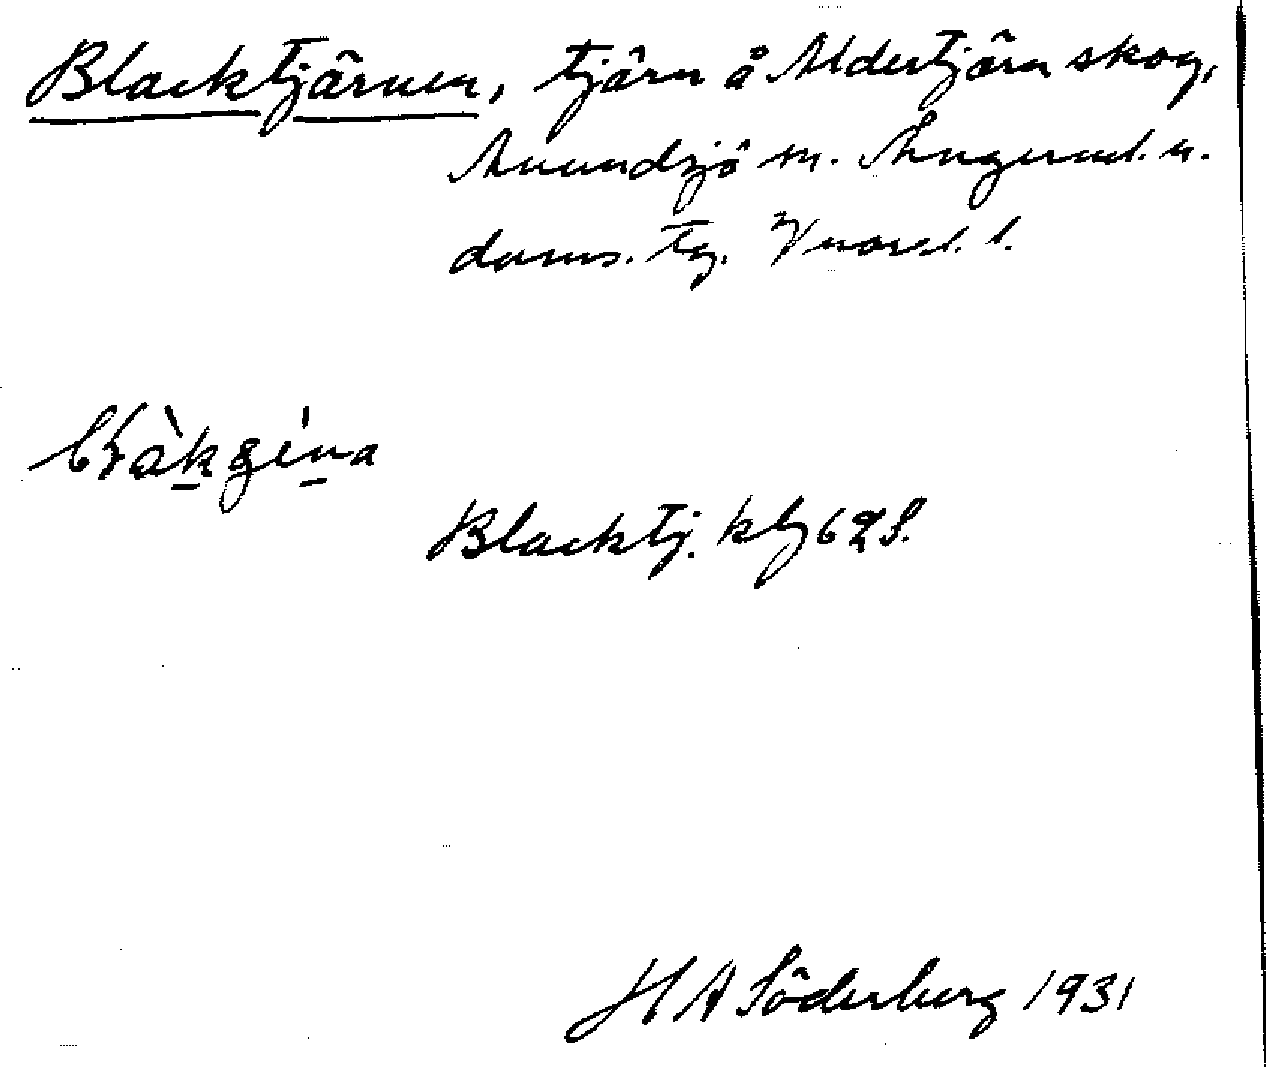 Blacktjärnen, tjärn å Aldertjärn skog,
Anundsjö sn. Ångerml. n.
doms. tg. Vnorrl. l.
Blacktj. kbl 62 S.
H A Söderberg 1931